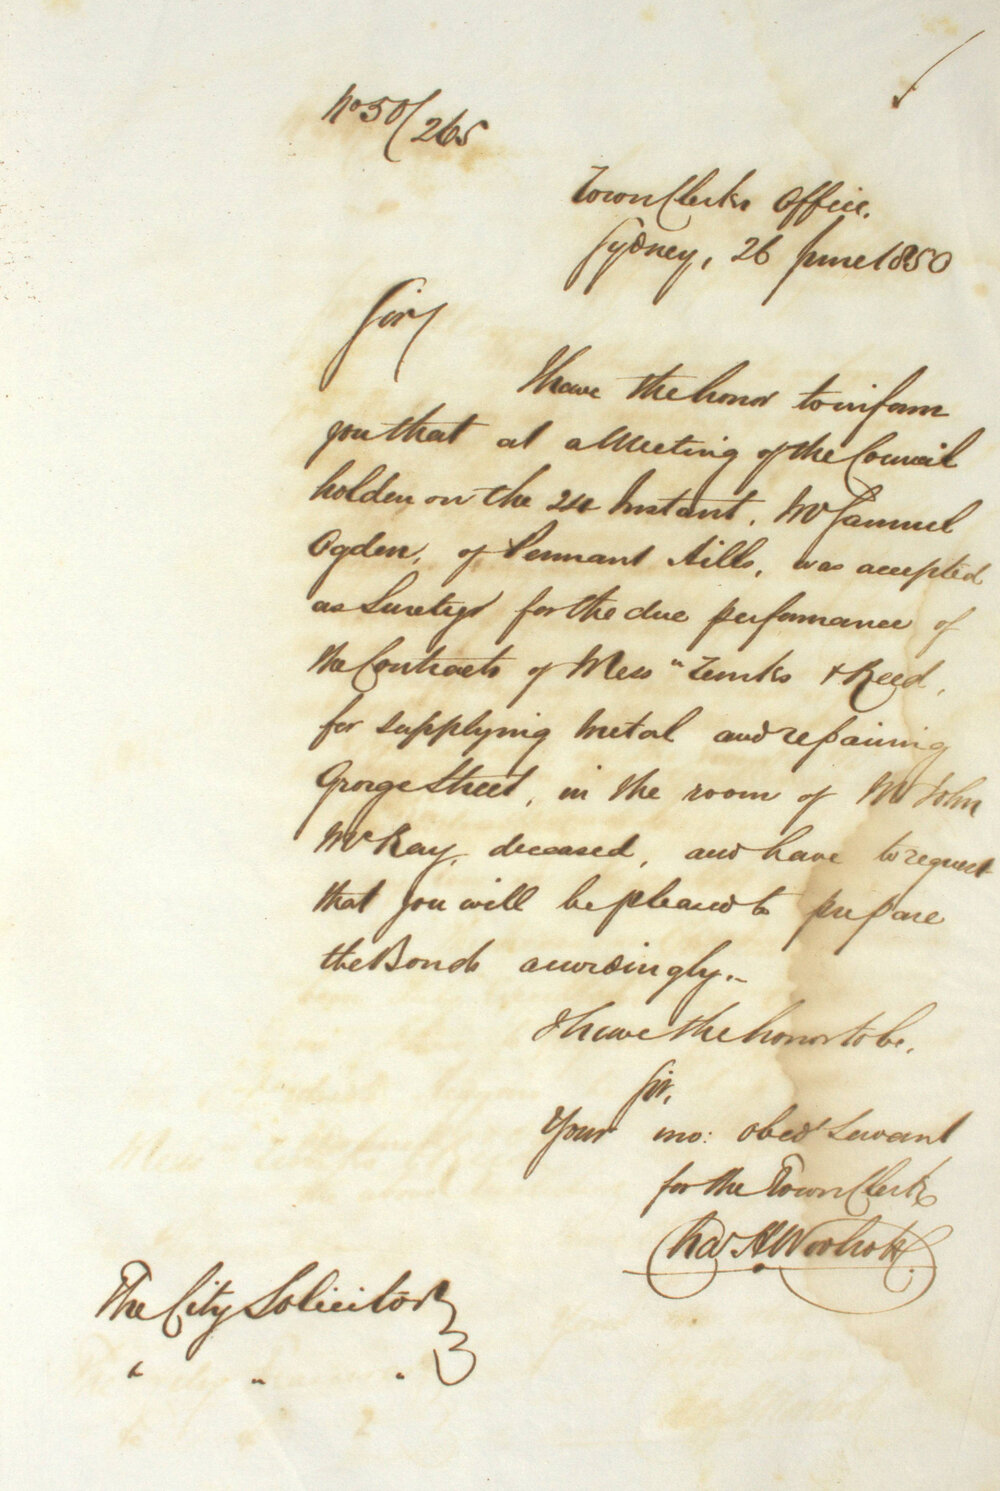 No 50/265
Town Clerks Office.
Sydney, 26 June 1850
Sir,
I have the honor to inform
you that at a Meeting of the Council
holden on the 24 Instant, Mr Samuel
Ogden, of Pennant Hills, was accepted
as Surety for the due performance of
the Contracts of Mess" & Reed,
for supplying Metal and repairing
George Street, in the room of Mr John
McKay, deceased, and have to request
that you will be pleased to prepare
the Bonds accordingly.
I have the honor to be,
Sir,
Your mo: obedt Servant
for the Town Clerk
Chas H Woolcott
The City Solicitor
" " "